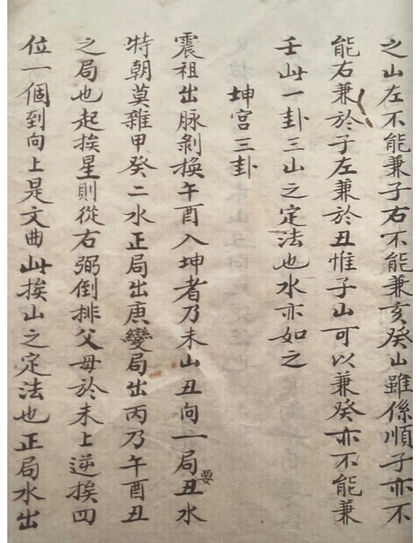 之山左不能兼子右不能兼亥癸山雖係順子亦不
能右兼於子左兼於丑惟子山可以兼癸亦不能兼
壬此一卦三山之定法也水亦如之
坤宮三卦
震祖出脉剝换午酉入坤者乃未山丑向一局丑水
要
特朝莫雜甲癸二水正局出庚變局出丙乃午酉丑
之局也起挨星則從右弼倒排父母於未上逆挨四
位一個到向上是文曲此挨山之定法也正局水出